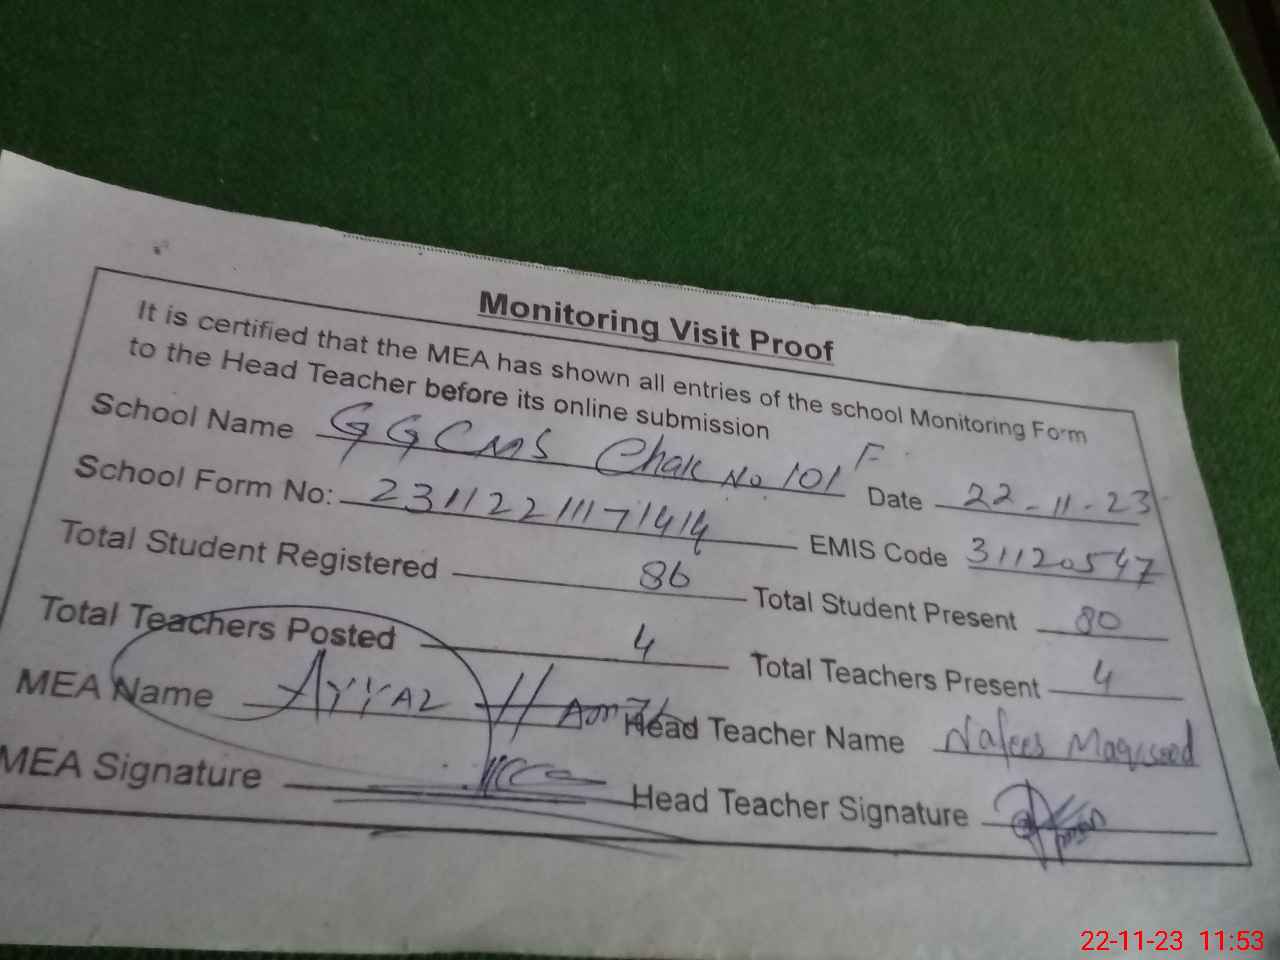 Monitoring Visit Proof
It is certified that the MEA has shown all entries of the school Monitoring Form
to the Head Teacher before its online submission
School Name GGCMS Chak No. 101 F Date 22-11-23
School Form No: 231122111171414 EMIS Code 31120547
Total Student Registered 86 Total Student Present 80
Total Teachers Posted 4 Total Teachers Present 4
MEA Name AYYAZ Head Teacher Name Nafees Maqsood
MEA Signature Head Teacher Signature
22-11-23 11:53